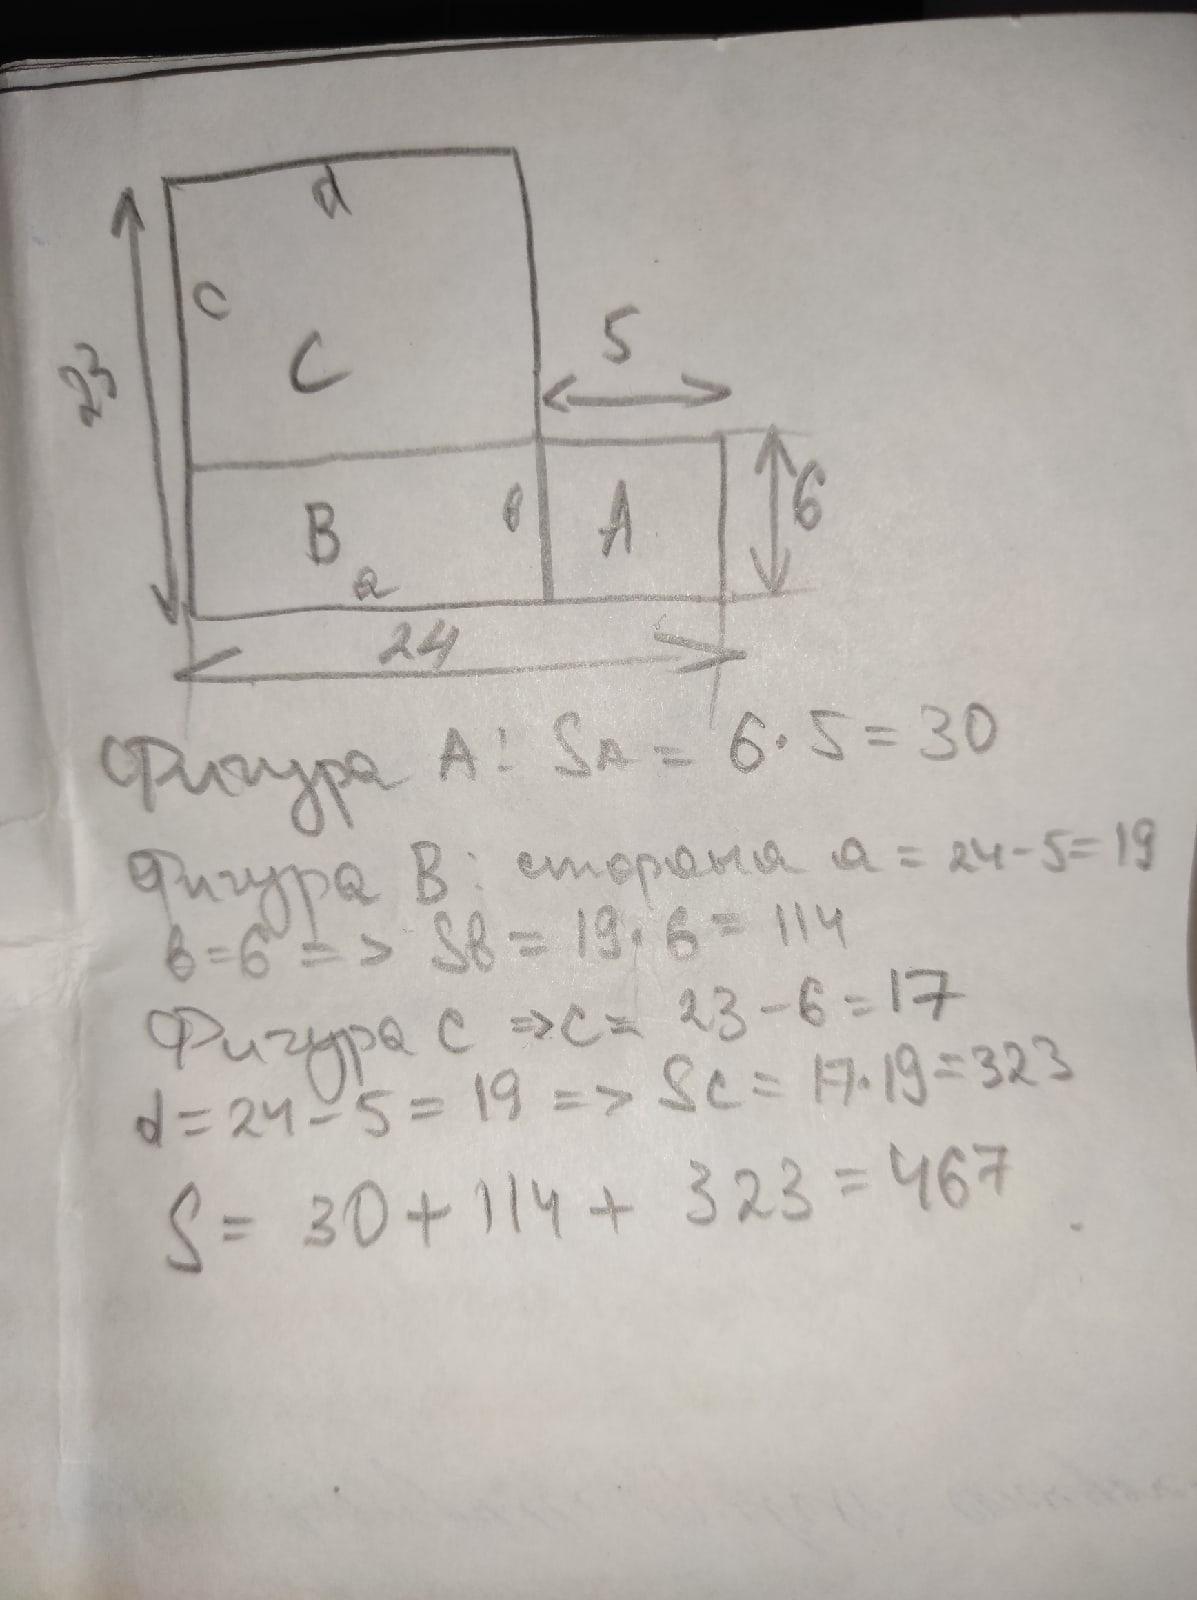 d
c
23
C
5
B
в
A
6
a
24
Фигура A: SA = 6·5=30
Фигура B: сторона a = 24-5=19
в=6 => Sв = 19·6 = 114
Фигура C => c = 23-6=17
d=24-5=19 => SC = 17·19=323
S= 30+114+ 323=467